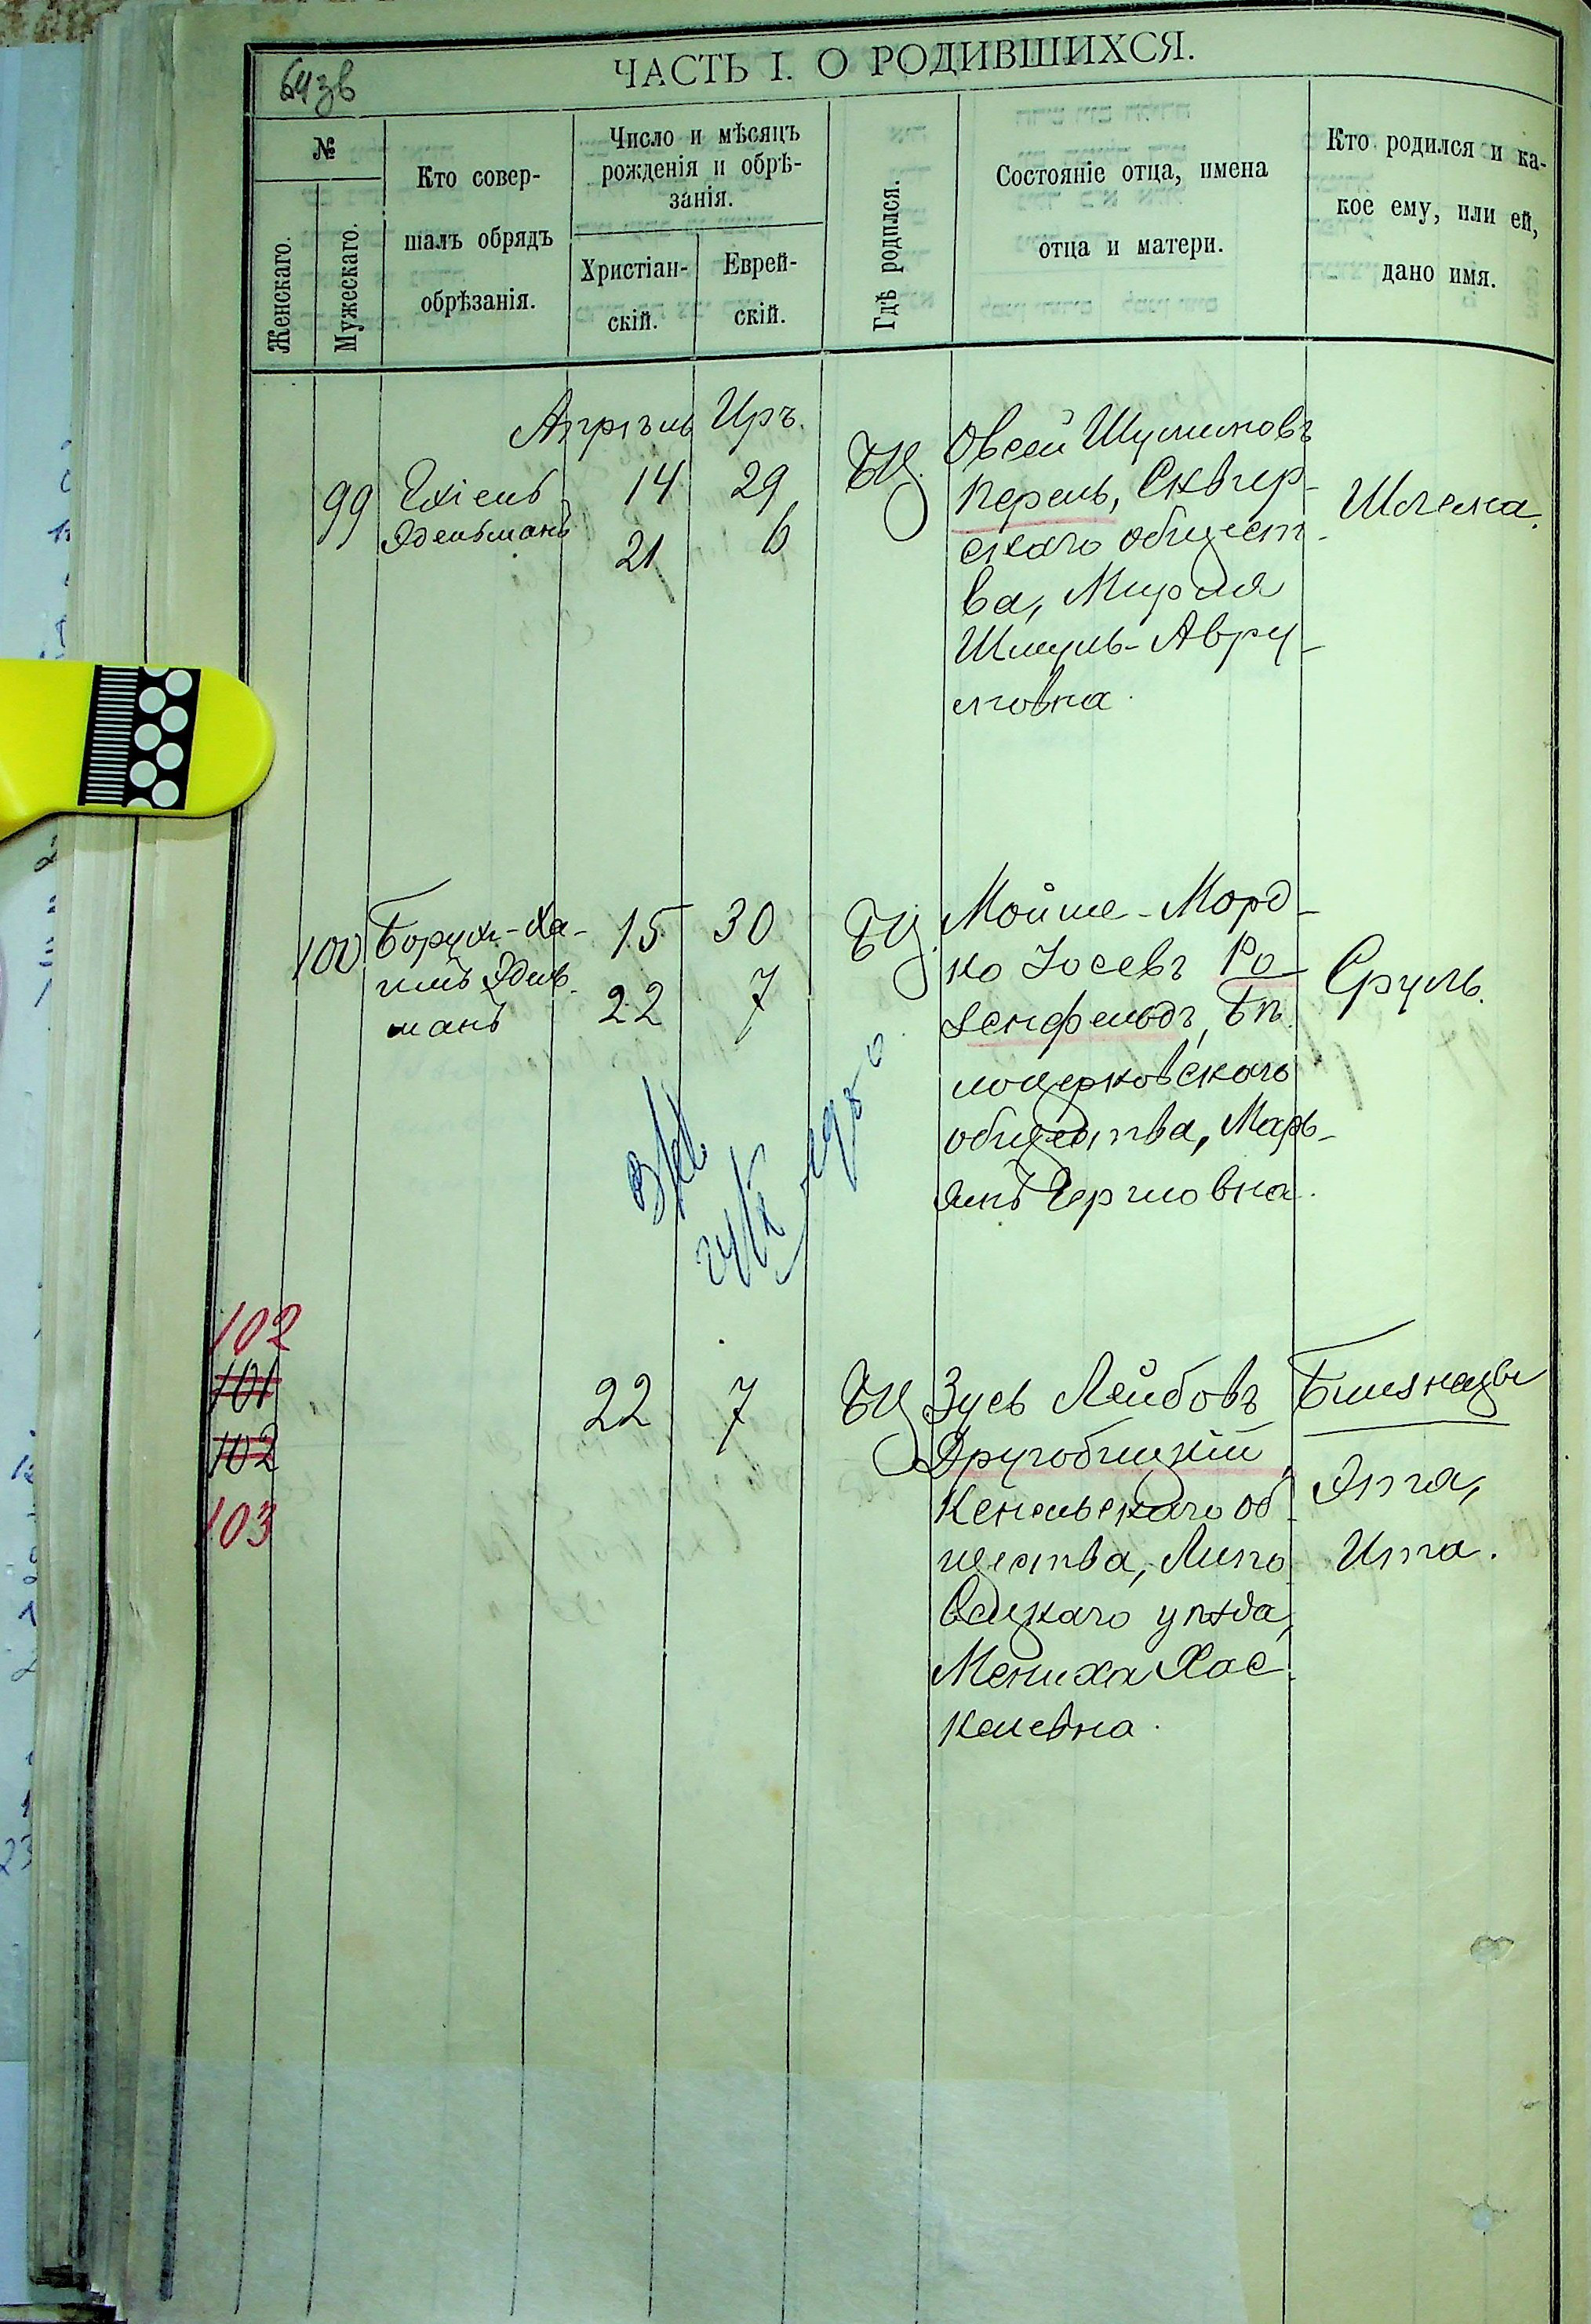 ЧАСТЬ I. О РОДИВШИХСЯ.
№
Женскаго.
Мужескаго.
Кто совер-
шалъ обрядъ
обрѣзанія.
Число и мѣсяцъ
рожденія и обрѣ-
занія.
Христіан-
скій.
Еврей-
скій.
Гдѣ родился.
Состояніе отца, имена
отца и матери.
Кто родился и ка-
кое ему, или ей,
дано имя.
Апрѣль Иръ.
99
Ехіель
Эдельманъ
14 29
21 6
БЦ.
Овсей Шулимовъ
Перель, Сквир-
скаго общест-
ва, Мирля
Шмуль-Авру-
мовна.
Шлема.
100
Борух-Ха-
имъ Эдель-
манъ
15 30
22 7
БЦ.
Мойше-Морд-
ко Iосевъ Ро-
зенфельдъ, Бѣ-
лоцерковскаго
общества, Марь-
ямъ Гершовна.
Сруль.
102
101
102
103
22 7
БЦ
Зусь Лейбовъ
Другобицкій
Кенельскаго об-
щества, Липо-
вецкаго уѣзда,
Мениха Хас-
келевна.
Близнецы
Эта,
Ита.